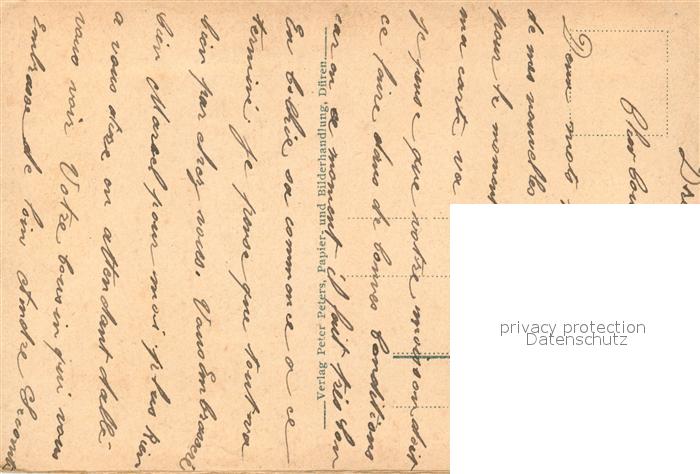 Deux mots
de mes nouvelles
pour le moment
ma carte va
Je pense que votre moisson doit
ce faire dans de bonnes conditions
car en ce moment il fait très bon
En Belgie sa commence a ce
terminé je pense que tout va
bien par chez vous. Vous Embrassé
bien Marcel pour moi plus rien
a vous dire en attendant dallé
vous voir Votre cousin qui vous
Embrasse de loin Andre
Verlag Peter Peters, Papier- und Bilderhandlung, Düren
privacy protection
Datenschutz